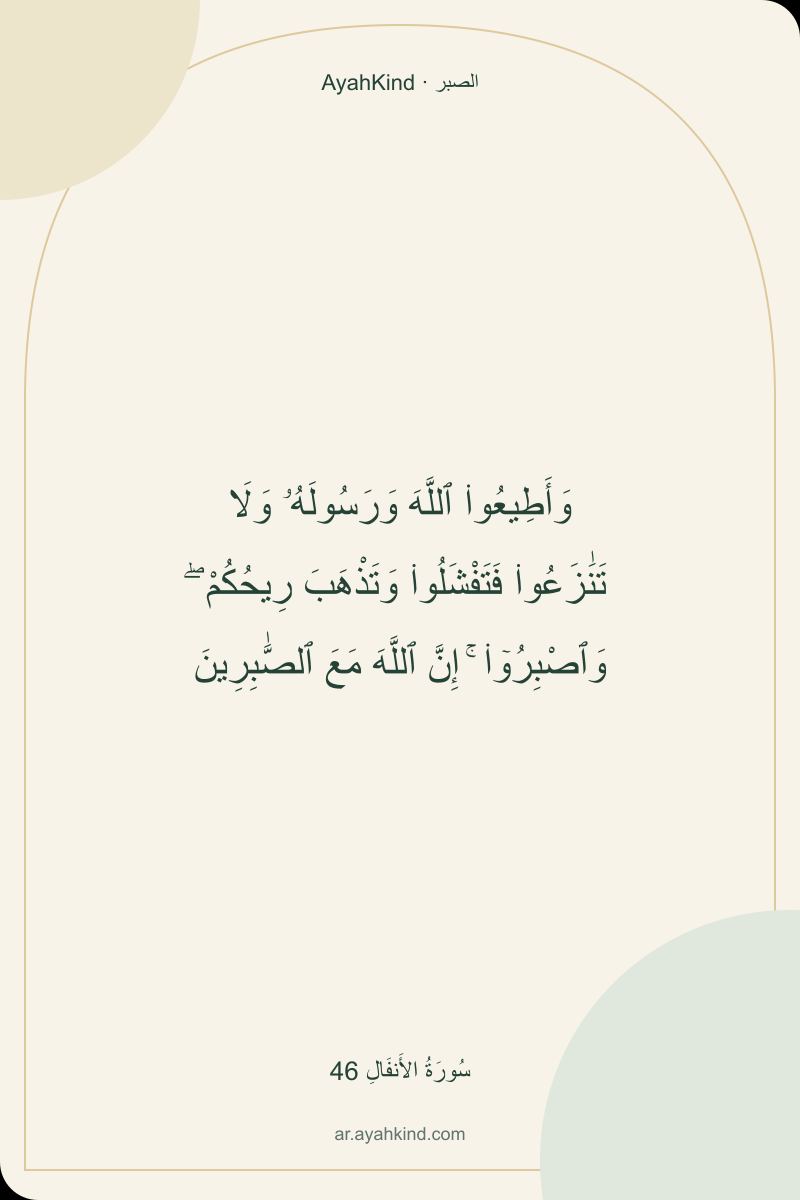 AyahKind · الصبر
وَأَطِيعُوا۟ ٱللَّهَ وَرَسُولَهُۥ وَلَا
تَنَٰزَعُوا۟ فَتَفْشَلُوا۟ وَتَذْهَبَ رِيحُكُمْ ۖ
وَٱصْبِرُوٓا۟ ۚ إِنَّ ٱللَّهَ مَعَ ٱلصَّٰبِرِينَ
سُورَةُ الأَنفَالِ 46
ar.ayahkind.com